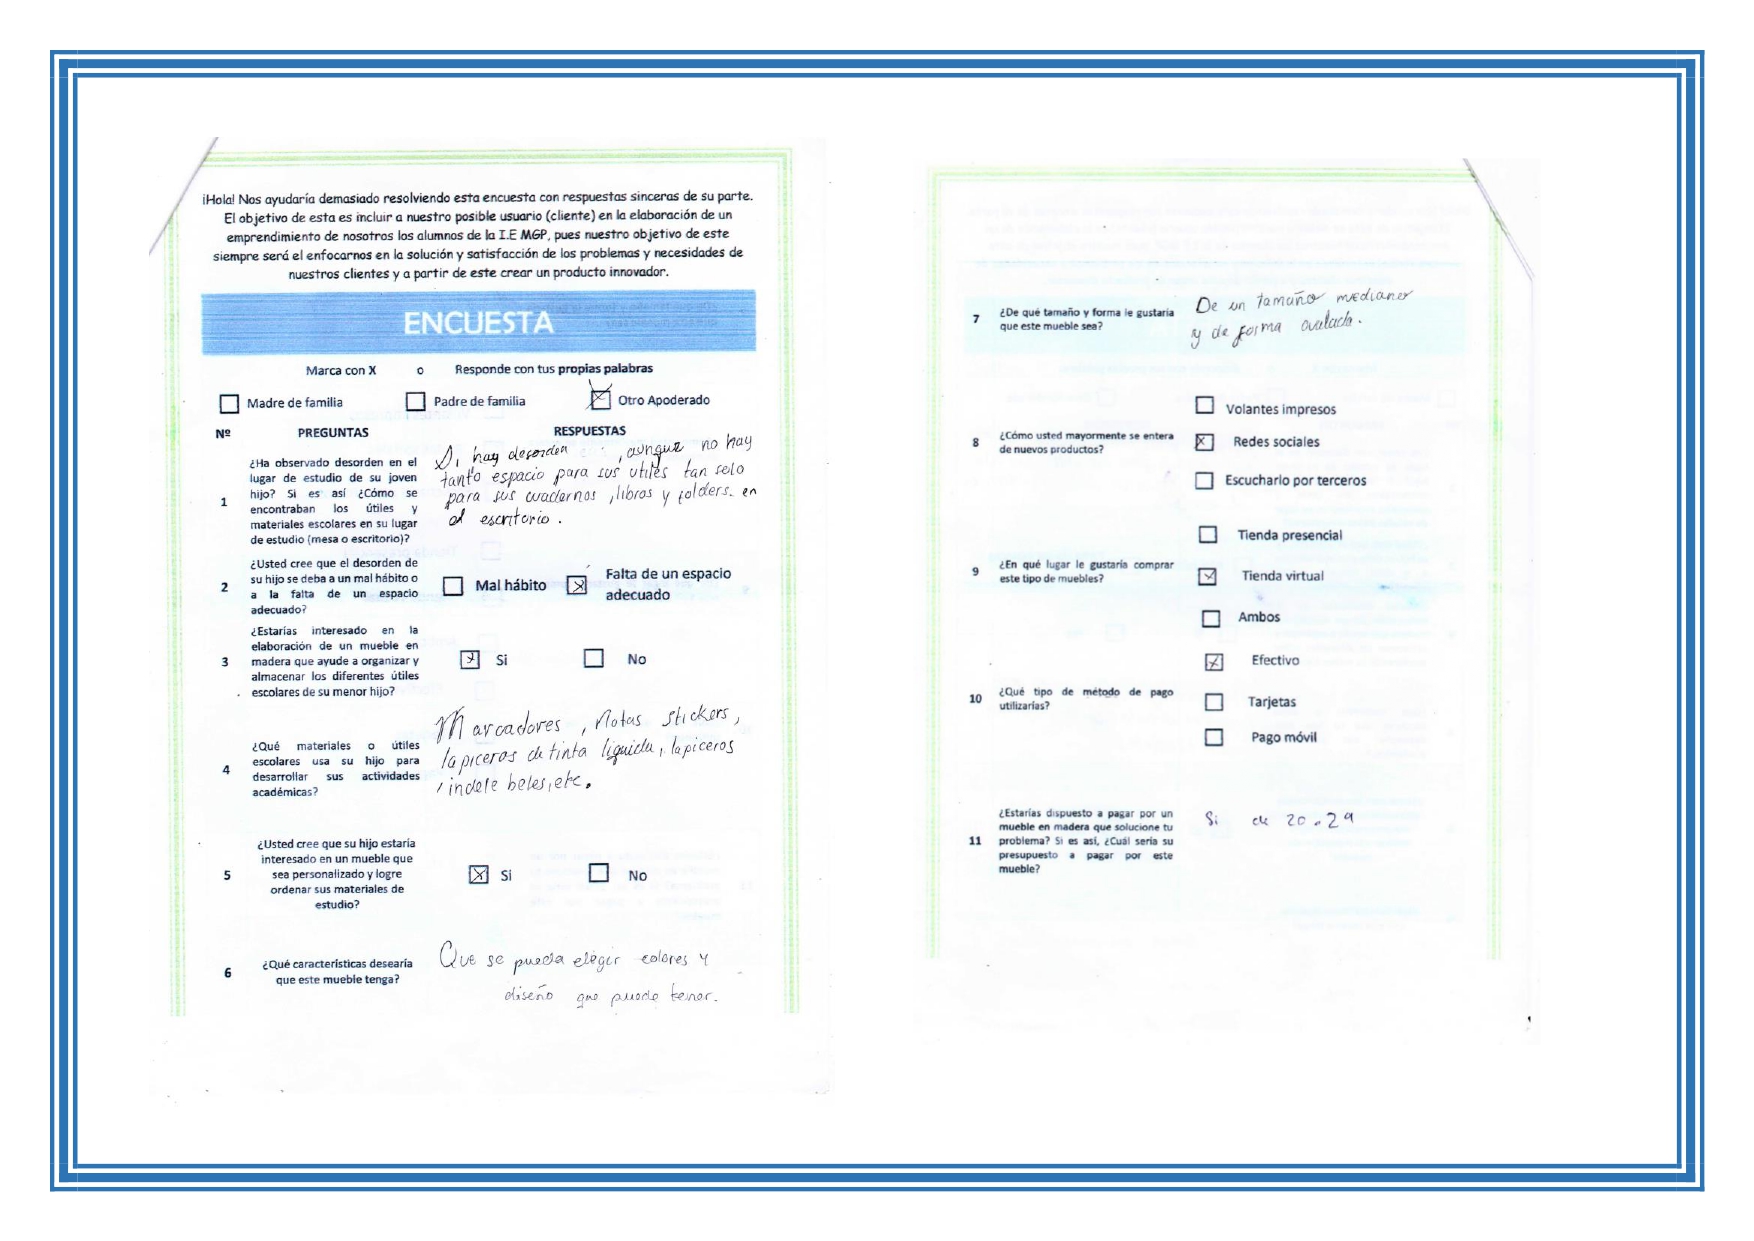 ¡Hola! Nos ayudaría demasiado resolviendo esta encuesta con respuestas sinceras de su parte.
El objetivo de esta es incluir a nuestro posible usuario (cliente) en la elaboración de un
emprendimiento de nosotros los alumnos de la I.E MGP, pues nuestro objetivo de este
siempre será el enfocarnos en la solución y satisfacción de los problemas y necesidades de
nuestros clientes y a partir de este crear un producto innovador.
ENCUESTA
Marca con X o Responde con tus propias palabras
Madre de familia Padre de familia Otro Apoderado
Nº PREGUNTAS RESPUESTAS
1
¿Ha observado desorden en el
lugar de estudio de su joven
hijo? Si es así ¿Cómo se
encontraban los útiles y
materiales escolares en su lugar
de estudio (mesa o escritorio)?
Si hay desorden , aunque no hay
tanto espacio para sus utiles tan solo
para sus cuadernos, libros y folders. en
el escritorio.
2
¿Usted cree que el desorden de
su hijo se deba a un mal hábito o
a la falta de un espacio
adecuado?
Mal hábito
Falta de un espacio
adecuado
3
¿Estarías interesado en la
elaboración de un mueble en
madera que ayude a organizar y
almacenar los diferentes útiles
escolares de su menor hijo?
Si No
4
¿Qué materiales o útiles
escolares usa su hijo para
desarrollar sus actividades
académicas?
Marcadores, Notas stickers,
lapiceros de tinta liquida, lapiceros
indelebeles, etc.
5
¿Usted cree que su hijo estaría
interesado en un mueble que
sea personalizado y logre
ordenar sus materiales de
estudio?
Si No
6
¿Qué características desearía
que este mueble tenga?
Que se pueda elegir colores y
diseño que puede tener.
7
¿De qué tamaño y forma le gustaría
que este mueble sea?
De un tamaño medianer
y de forma ovalada.
8
¿Cómo usted mayormente se entera
de nuevos productos?
Volantes impresos
Redes sociales
Escucharlo por terceros
9
¿En qué lugar le gustaría comprar
este tipo de muebles?
Tienda presencial
Tienda virtual
Ambos
10
¿Qué tipo de método de pago
utilizarías?
Efectivo
Tarjetas
Pago móvil
11
¿Estarías dispuesto a pagar por un
mueble en madera que solucione tu
problema? Si es así, ¿Cuál sería su
presupuesto a pagar por este
mueble?
Si de 20.29